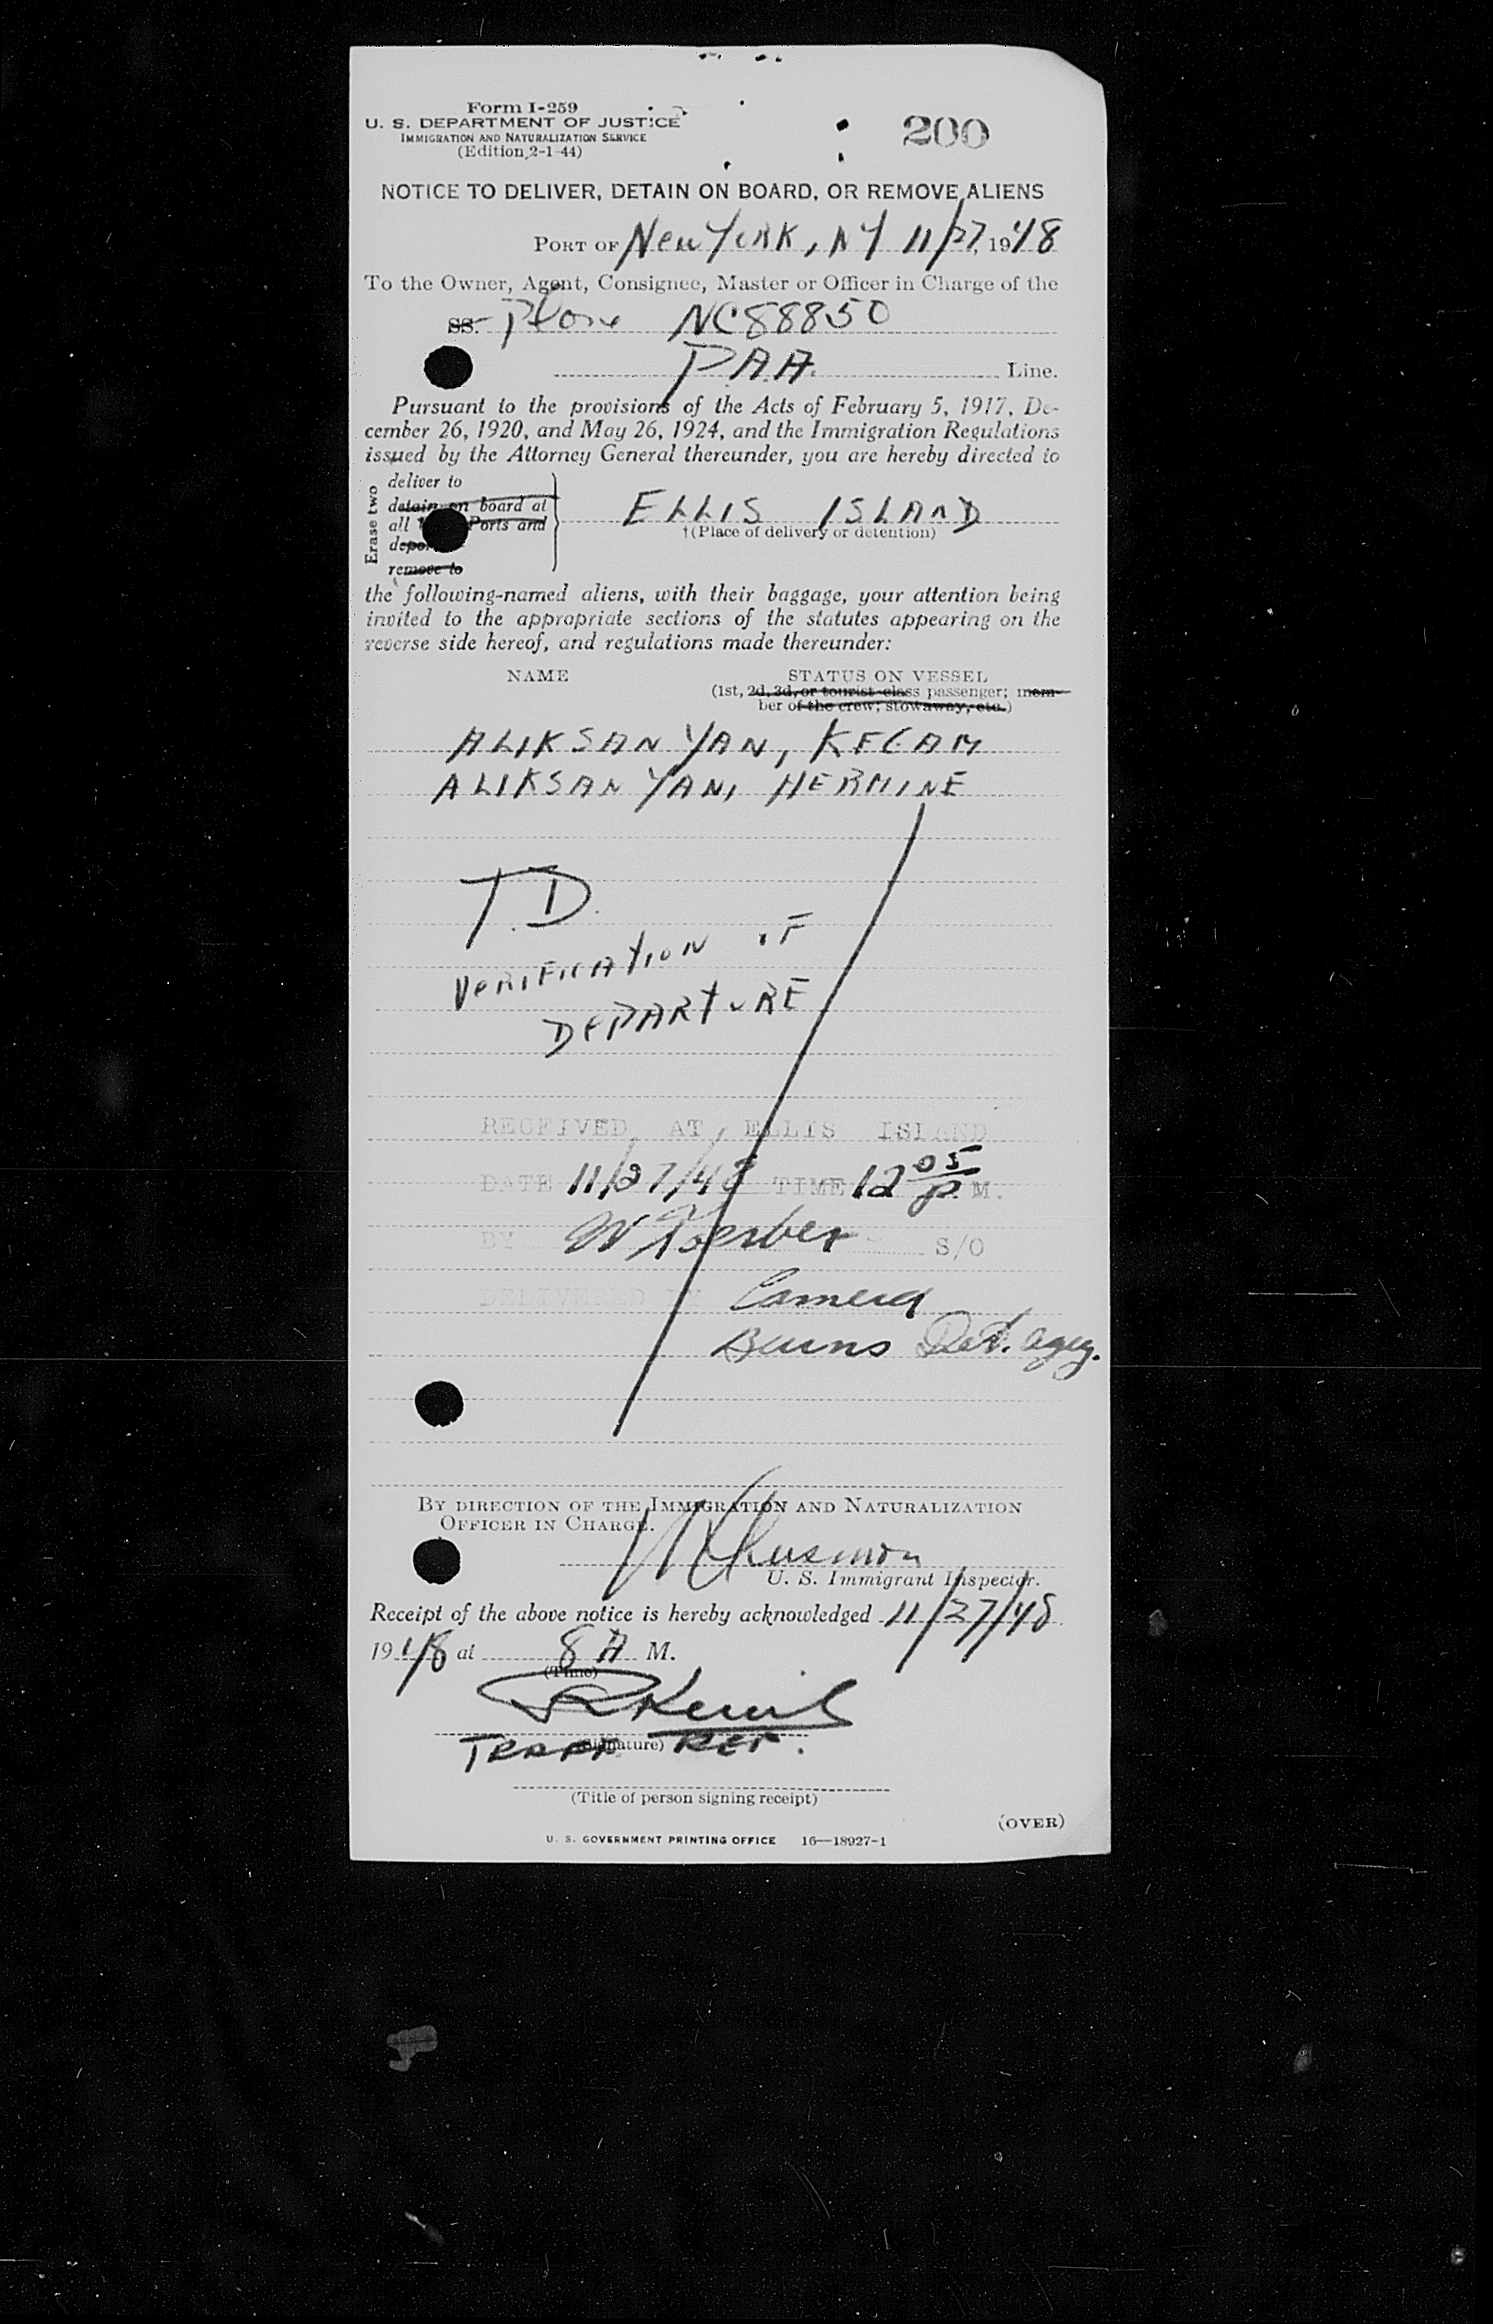 Form I-259
U. S. DEPARTMENT OF JUSTICE
IMMIGRATION AND NATURALIZATION SERVICE
(Edition 2-1-44)
200
NOTICE TO DELIVER, DETAIN ON BOARD, OR REMOVE ALIENS
PORT OF New York, NY 11/27, 1948
To the Owner, Agent, Consignee, Master or Officer in Charge of the
SS. Plane NC88850
P.A.A. Line.
Pursuant to the provisions of the Acts of February 5, 1917, De-
cember 26, 1920, and May 26, 1924, and the Immigration Regulations
issued by the Attorney General thereunder, you are hereby directed to
Erase two
deliver to
detain on board at
all Ports and
remove to
ELLIS ISLAND
†(Place of delivery or detention)
the following-named aliens, with their baggage, your attention being
invited to the appropriate sections of the statutes appearing on the
reverse side hereof, and regulations made thereunder:
NAME STATUS ON VESSEL
(1st, 2d, 3d, or tourist class passenger; mem-
ber of the crew; stowaway, etc.)
ALIKSANYAN, KEGAM
ALIKSANYAN, HERMINE
T.D.
VERIFICATION OF
DEPARTURE
RECEIVED AT ELLIS ISLAND
DATE 11/27/48 TIME 12 05 P. M.
BY W Koerber S/O
DELIVERED BY Camera
Burns Det. Agcy.
BY DIRECTION OF THE IMMIGRATION AND NATURALIZATION
OFFICER IN CHARGE.
U. S. Immigrant Inspector.
Receipt of the above notice is hereby acknowledged 11/27/48
1948 at 8 A M.
(Time)
(Signature)
REP.
(Title of person signing receipt)
(OVER)
U. S. GOVERNMENT PRINTING OFFICE 16—18927-1